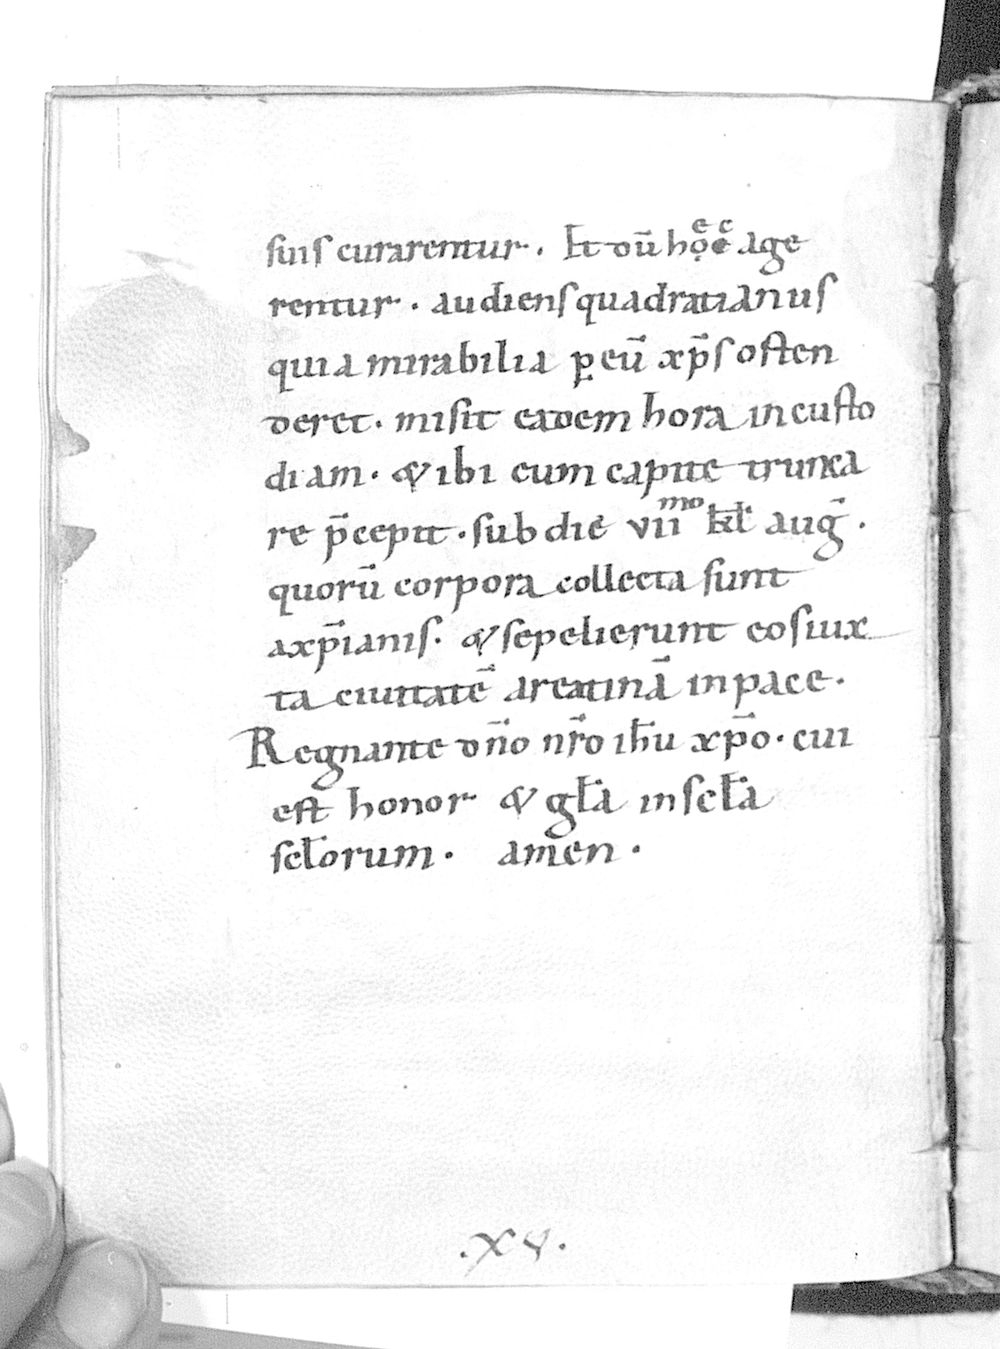 suis curarentur. Et dū hęc age
rentur. audiens quadratianus
quia mirabilia ꝑ eū xp̄s osten
deret. misit eadem hora in custo
diam. & ibi eum capite trunca
re p̄cepit. sub die viiᵐᵒ kł auḡ.
quorū corpora collecta sunt
axp̄ianis. & sepelierunt eos iux
ta ciuitatē areatinā in pace.
Regnante dn̄o nr̄o ih̄u xp̄o. cui
est honor & gła in scła
scłorum. amen.
.XV.